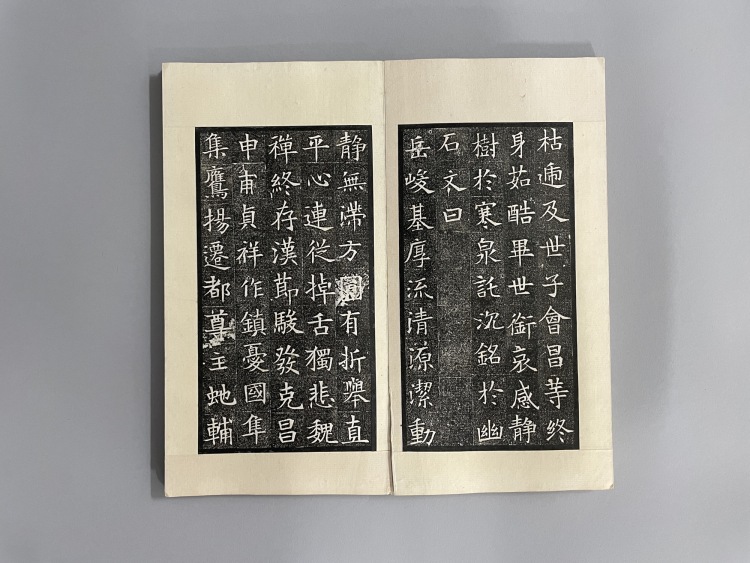 枯及世子會昌等終
身茹酷畢世銜哀感静
樹於寒泉託沉銘於幽
石文曰
岳峻基厚流清源潔動
静無滯方圓有折舉直
平心連從掉舌獨悲魏
禪終存漢節駿發克昌
申甫貞祥作鎮憂國隼
集鷹揚遷都尊主虵輔